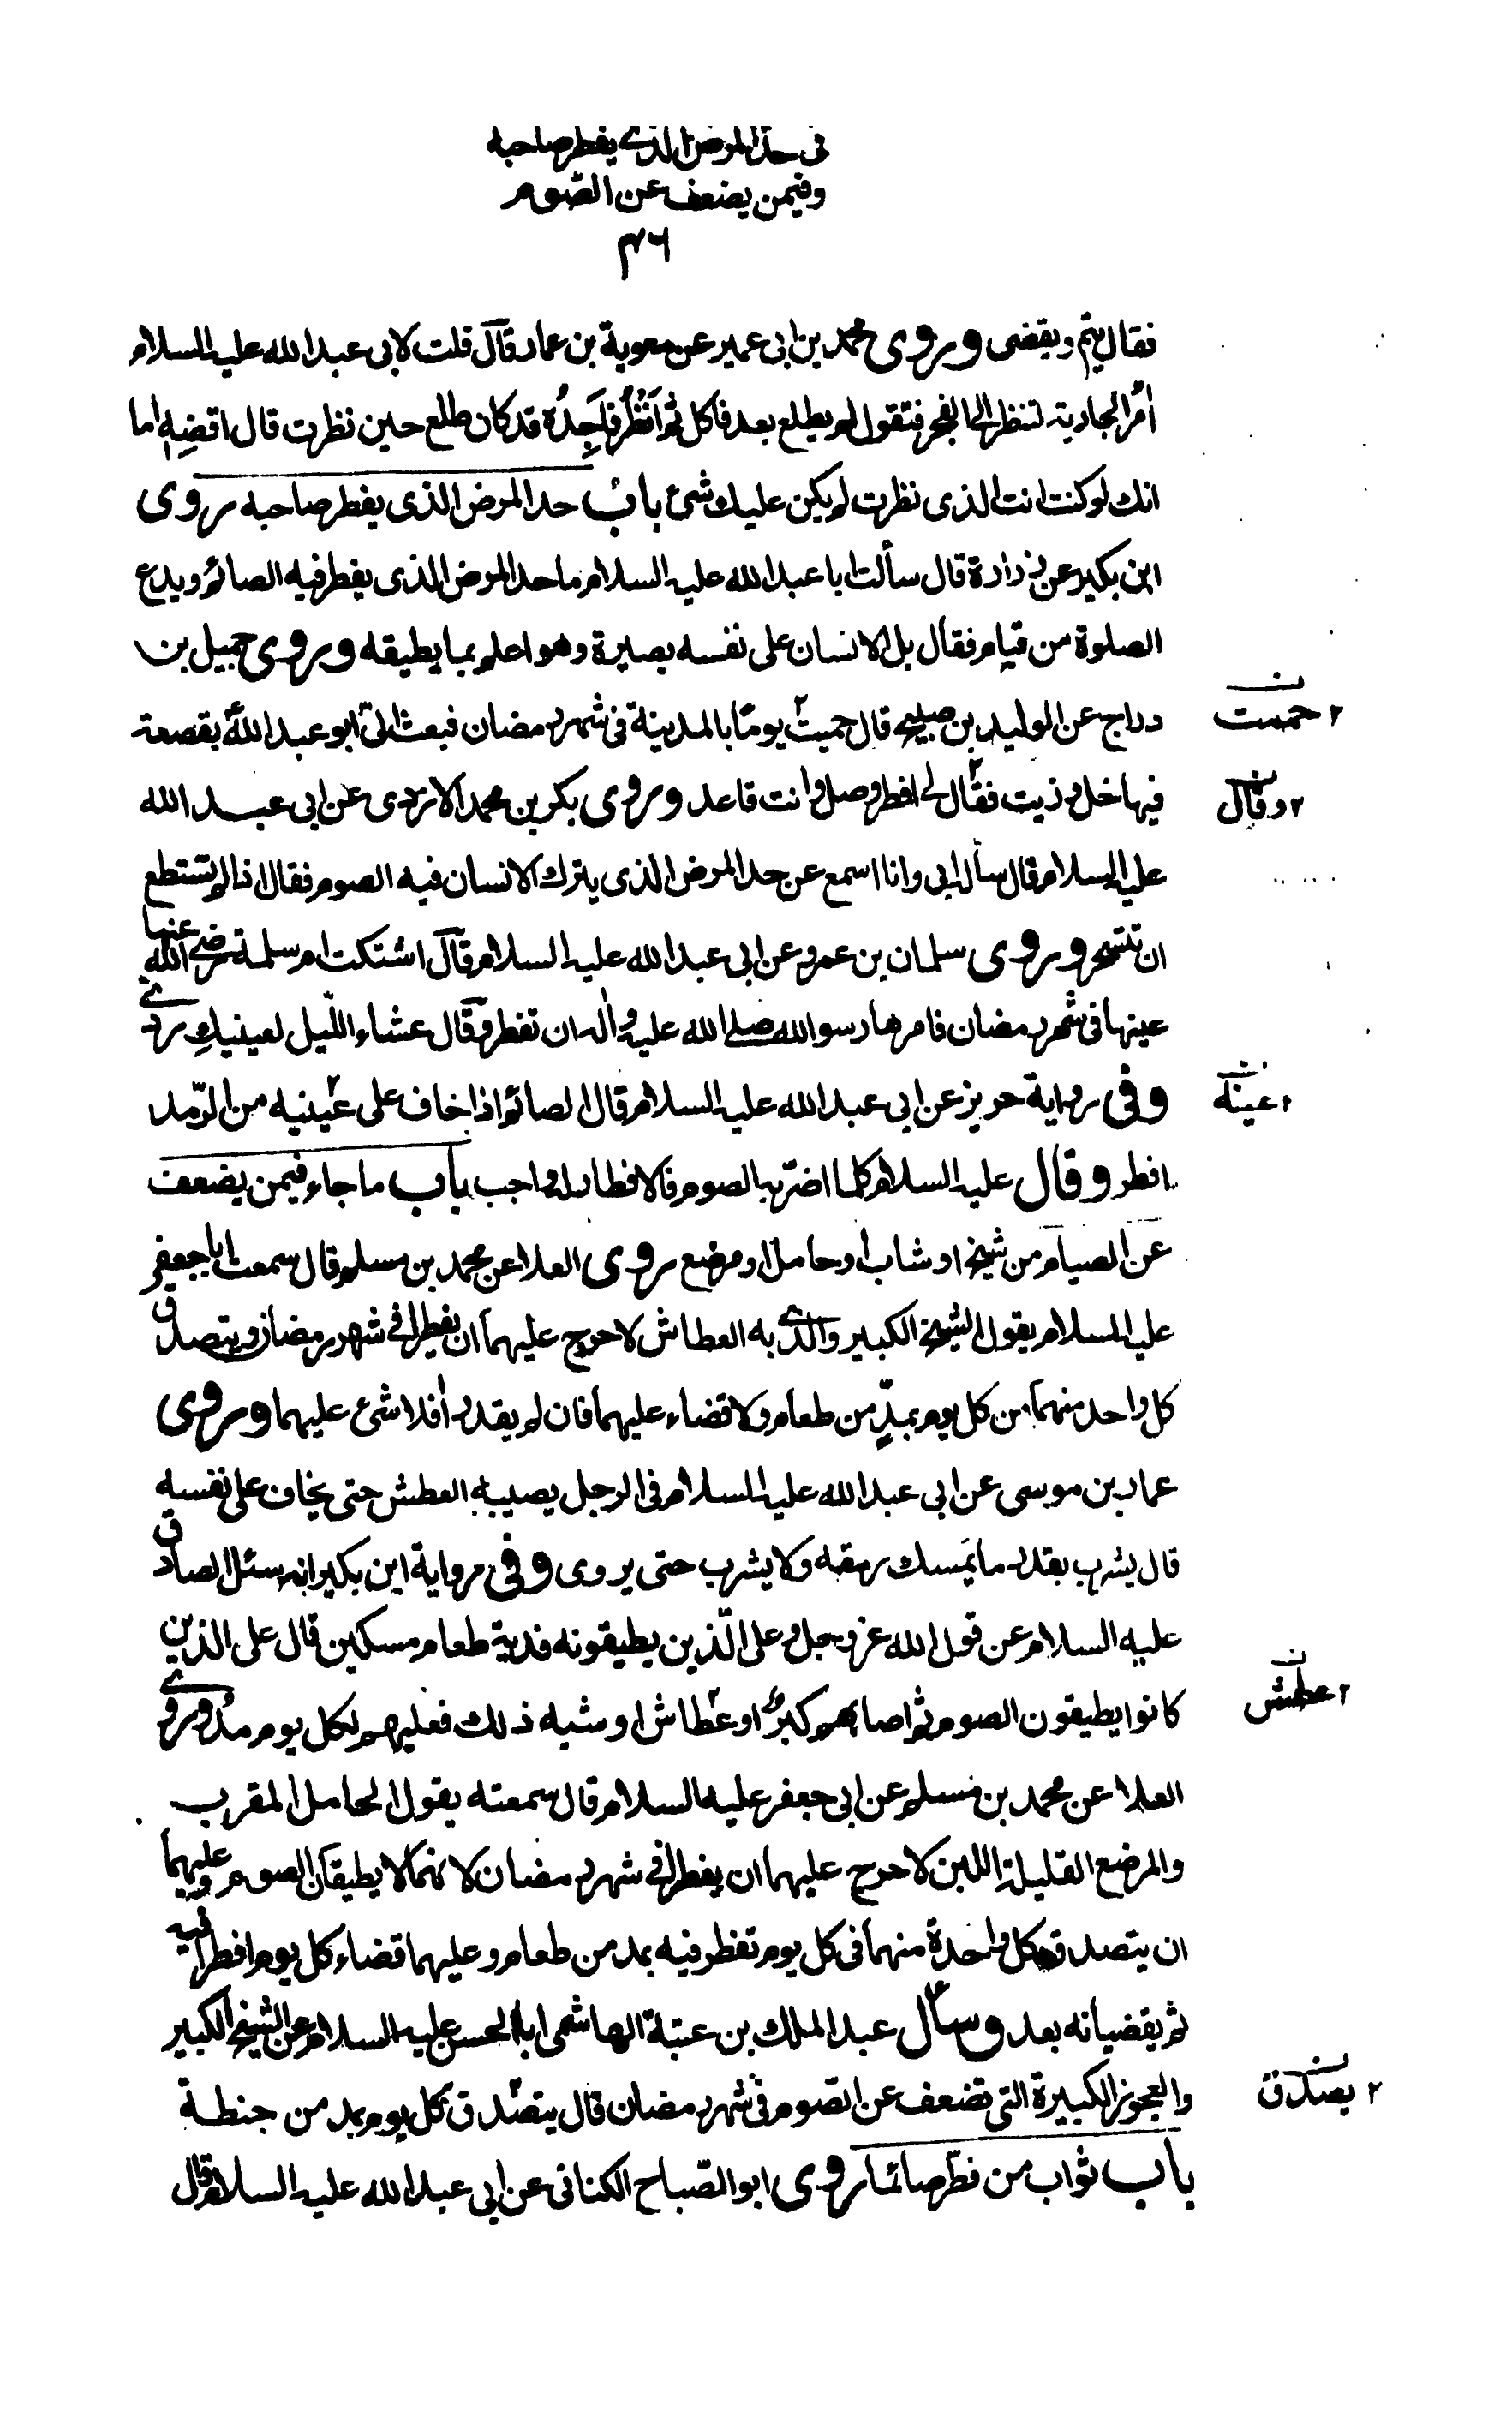 فى حد المرض الذى يفطر صاحبه
وفيمن يضعف عن الصوم
٤٦
فقال يتم ويقضى وروى محمد بن ابى عمير عن معوية بن عمار قال قلت لابى عبد الله عليه السلام
اٰمر الجارية لتنظر الى الفجر فتقول لم يطلع بعد فاكل ثم اَنْظُرُ فاَجِدُه قد كان طلع حين نظرت قال اقضِه اما
انك لو كنت انت الذى نظرت لم يكن عليك شئ بابُ حد المرض الذى يفطر صاحبه روى
ابن بكير عن زرارة قال سألت ابا عبد الله عليه السلام ما حد المرض الذى يفطر فيه الصائم ويدع
الصلوة من قيام فقال بل الانسان على نفسه بصيرة وهو اعلم بما يطيقه وروى جميل بن
دراج عن الوليد بن صبيح قال حميت٢ يومًا بالمدينة فى شهر رمضان فبعث الىّ ابو عبد الله ع بقصعة
٢ حممت
فيها خل وزيت فقال٢ لى افطر وصل وانت قاعد وروى بكر بن محمد الازدى عن ابى عبد الله
٢ وقال
عليه السلام قال سأله ابى وانا اسمع عن حد المرض الذى يترك الانسان فيه الصوم فقال اذا لم تستطع
ان تتسحر وروى سلمان بن عمرو عن ابى عبد الله عليه السلام قال اشتكت ام سلمة رضى الله عنها
عينها فى شهر رمضان فامرها رسول الله صلى الله عليه واٰله ان تفطر وقال عشاء اللّيل لعينيكِ ردى
وفى رواية حريز عن ابى عبد الله عليه السلام قال الصائم اذا خاف على عينيه٢ من الرّمد
٢ عينه
افطر وقال عليه السلام كلما اضرّ به الصوم فالافطار له واجب باب ما جاء فيمن يضعف
عن الصيام من شيخ او شاب او حامل او مرضع روى العلا عن محمد بن مسلم قال سمعت ابا جعفر
عليه السلام يقول الشيخ الكبير والذى به العطاش لا حرج عليهما ان يفطرا فى شهر رمضان ويتصدق
كل واحد منهما من كل يوم بمدٍّ من طعام ولا قضاء عليهما فان لم يقدرا فلا شئ عليهما وروى
عمار بن موسى عن ابى عبد الله عليه السلام فى الرجل يصيبه العطش حتى يخاف على نفسه
قال يشرب بقدر ما يَمسك رمقه ولا يشرب حتى يروى وفى رواية ابن بكير انه سئل الصادق
عليه السلام عن قول الله عز وجل وعلى الّذين يطيقونه فدية طعام مسكين قال على الذين
كانوا يطيقون الصوم ثم اصابهم كبرٌ او عطاش٢ او شبه ذلك فعليهم لكل يوم مدٌ وروى
٢ عطش
العلا عن محمد بن مسلم عن ابى جعفر عليه السلام قال سمعته يقول الحامل المقرب
والمرضع القليلة اللبن لا حرج عليهما ان يفطرا فى شهر رمضان لانهما لا يطيقان الصوم وعليهما
ان يتصدق كل واحدة منهما فى كل يوم تفطر فيه بمد من طعام وعليهما قضاء كل يوم افطرا فيه
ثم يقضيانه بعد وسأل عبد الملك بن عتبة الهاشمى ابا الحسن عليه السلام عن الشيخ الكبير
والعجوز الكبيرة التى تضعف عن الصوم فى شهر رمضان قال يتصّدق٢ كل يوم بمد من حنطة
٢ يصدق
باب ثواب من فطّر صائما روى ابو الصّباح الكنانى عن ابى عبد الله عليه السلام قال